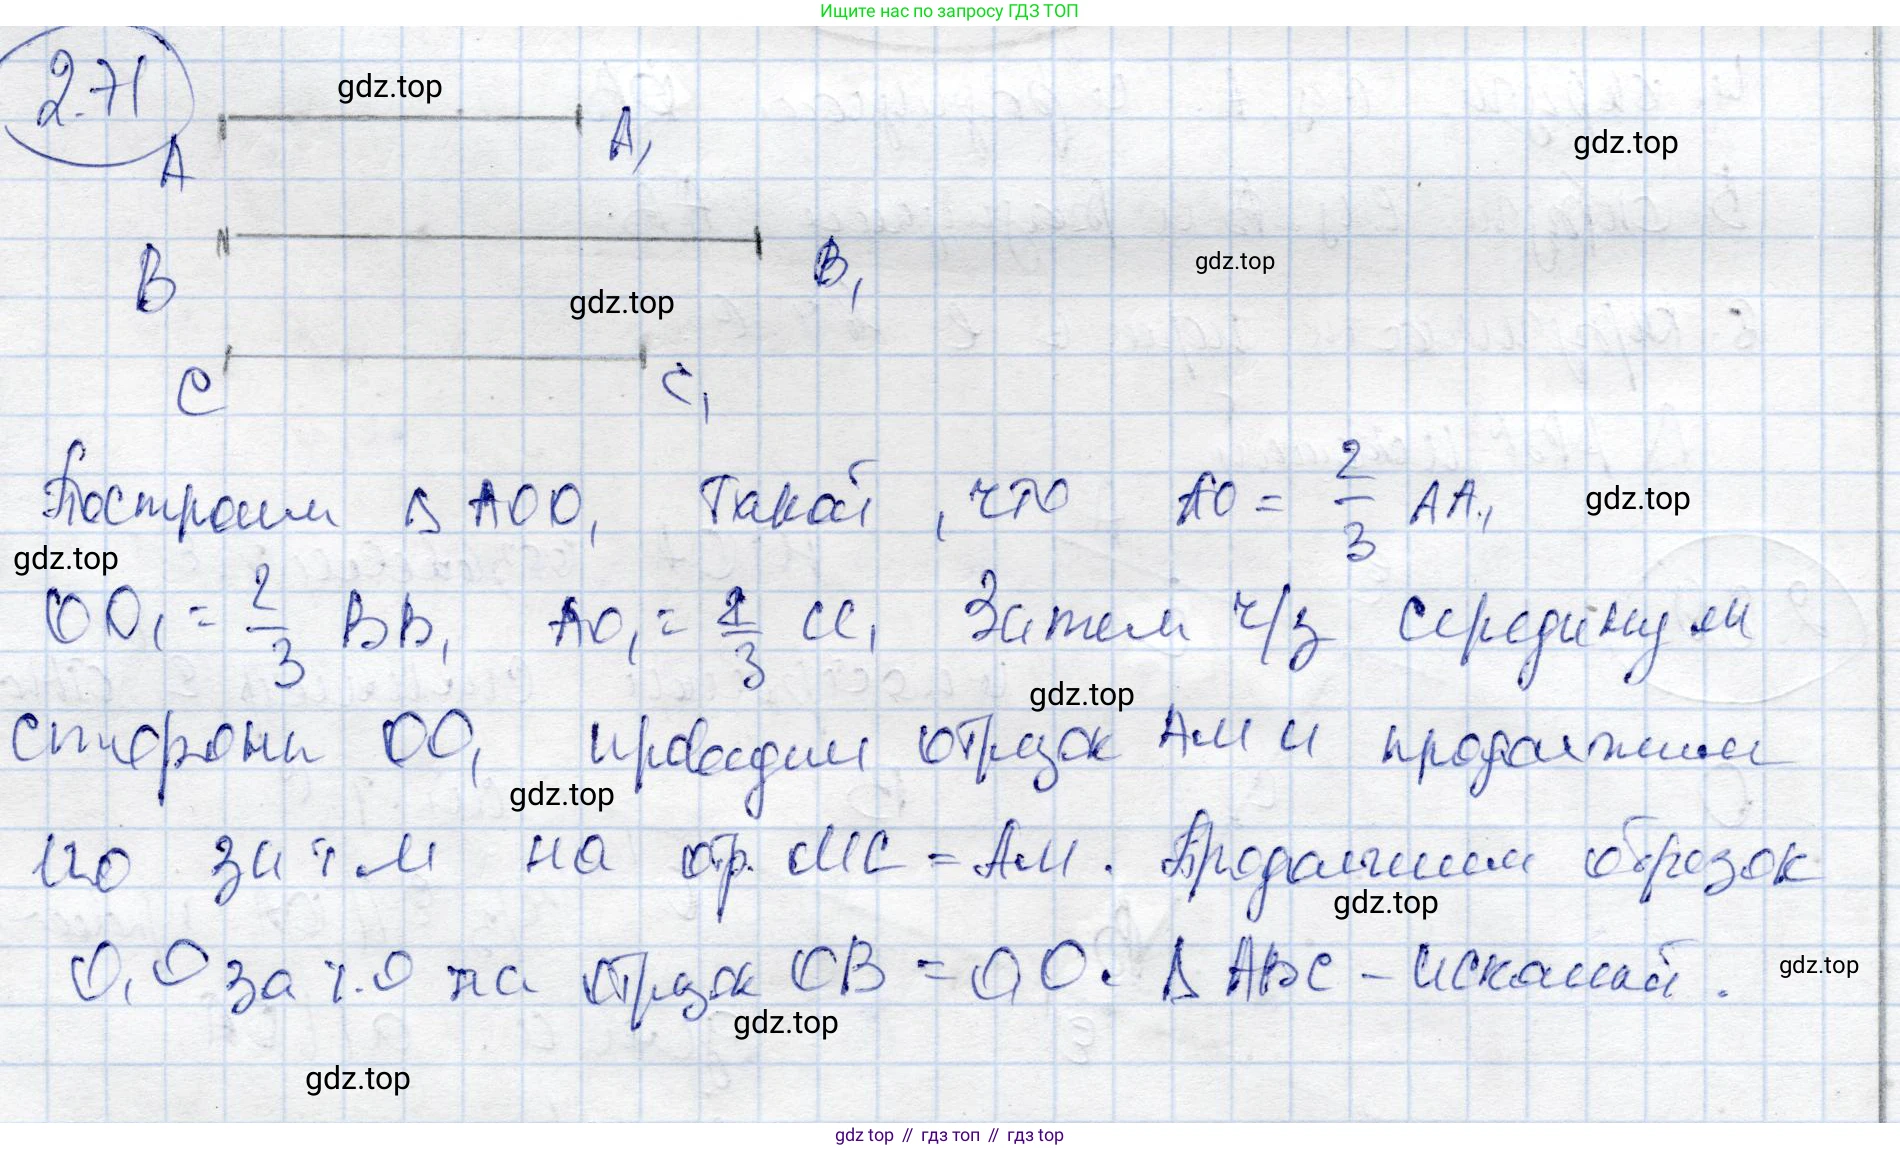 Ищите нас по запросу ГДЗ ТОП
2.71
gdz.top
A A₁
gdz.top
B B₁
gdz.top
gdz.top
C C₁
Построим Δ AOO₁ такой, что AO = 2/3 AA₁,
gdz.top
gdz.top
OO₁ = 2/3 BB₁ AO₁ = 2/3 CC₁ Затем ч/з середину М
gdz.top
стороны OO₁ проводим отрезок AM и продолжим
gdz.top
его за т. М на отр. MC = AM. Продолжим отрезок
gdz.top
O₁O за т. O на отрезок OB = O₁O. Δ ABC – искомый.
gdz.top
gdz.top
gdz.top
gdz top // гдз топ // гдз top